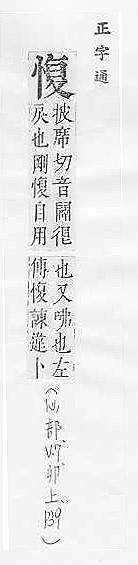 正字通
愎
披席切音闢很
戾也剛愎自用
也又咈也左
傳愎諫違卜
(心部 卯上, 139)